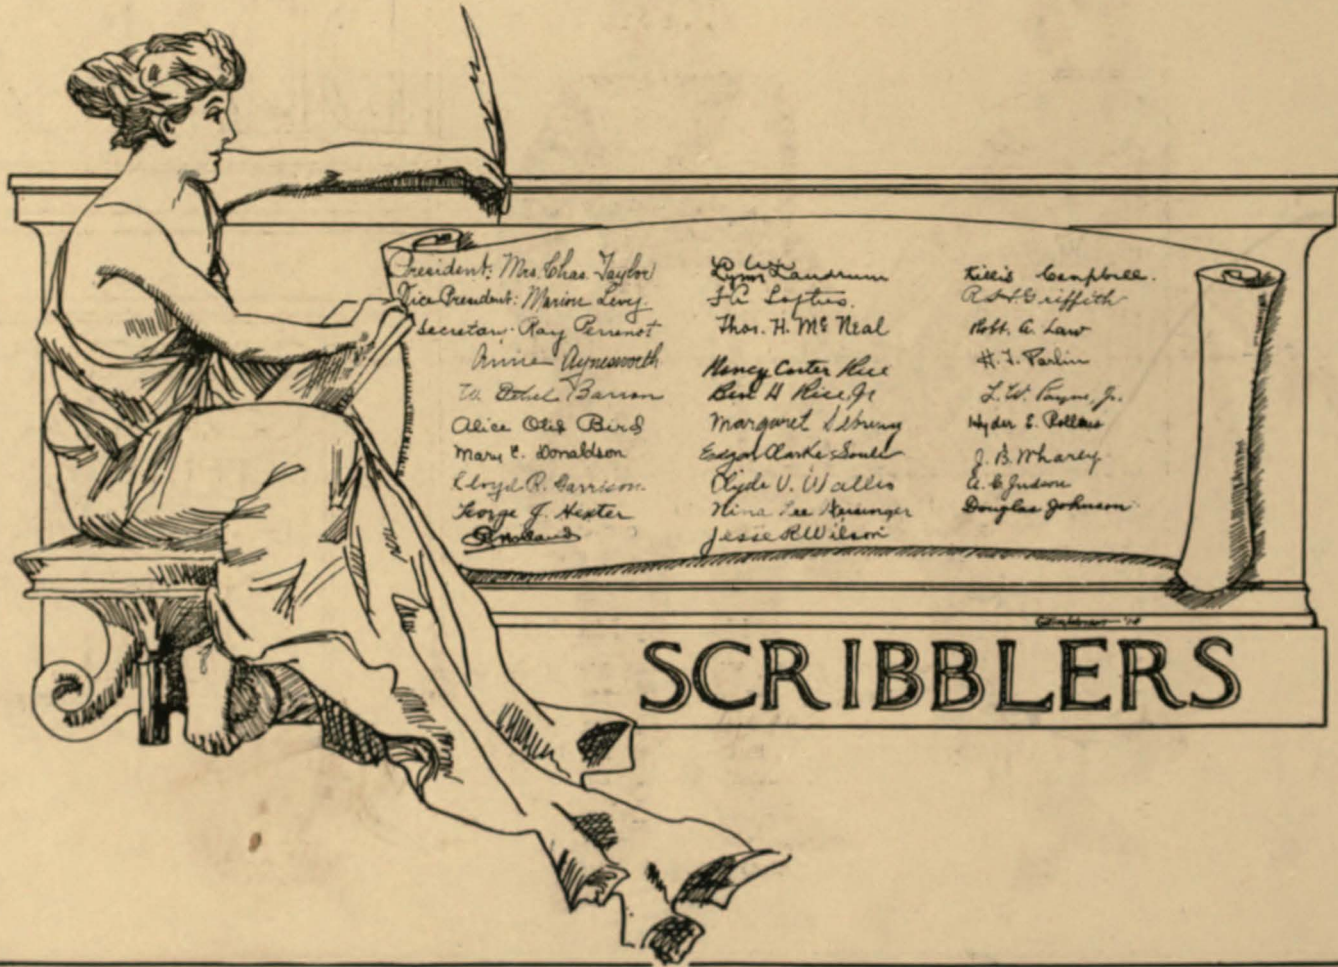 President: Mrs. Chas. Taylor
Vice President: Marion Levy.
Secretary: Ray Perrenot
Annie Aynesworth
Ethel Barron
Alice Otis Bird
Mary E. Donaldson
Lloyd P. Garrison.
George J. Hexter
Holland
Lynn Landrum
Loftus.
Thos. H. McNeal
Nancy Carter Rice
Ben H Rice, Jr
Margaret
Edgar Clarke Soule
Clyde V. Wallis
Nina Lee Weisinger
Jesse R Wilson
Killis Campbell.
Griffith
Robt. A. Law
H. T. Parlin
L. W. Payne, Jr.
Hyder E. Rollins
J. B. Wharey
A. C. Judson
Douglas Johnson
'14
SCRIBBLERS